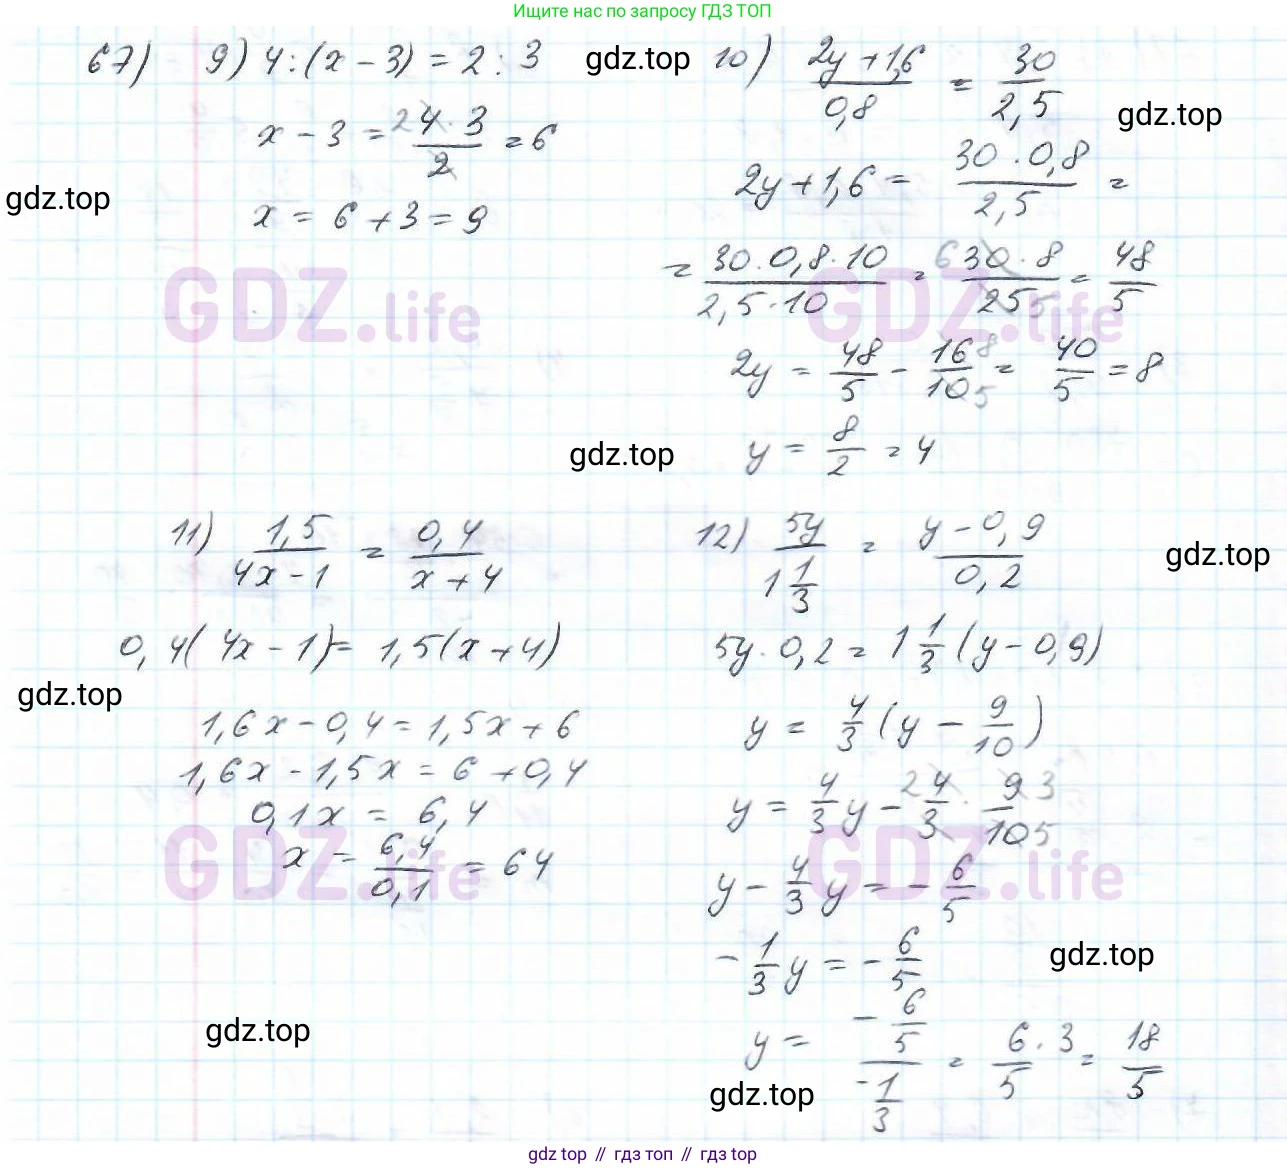 Ищите нас по запросу ГДЗ ТОП
67) 9) 4 : (x - 3) = 2 : 3
gdz.top
x - 3 = 2 4 · 3 / 2 = 6
gdz.top
x = 6 + 3 = 9
10) 2y + 1,6 / 0,8 = 30 / 2,5
gdz.top
2y + 1,6 = 30 · 0,8 / 2,5 =
= 30 · 0,8 · 10 / 2,5 · 10 = 6 30 · 8 / 25 5 = 48 / 5
GDZ.life
GDZ.life
2y = 48 / 5 - 16 8 / 10 5 = 40 / 5 = 8
gdz.top
y = 8 / 2 = 4
11) 1,5 / 4x - 1 = 0,4 / x + 4
0,4(4x - 1) = 1,5(x + 4)
gdz.top
1,6x - 0,4 = 1,5x + 6
1,6x - 1,5x = 6 + 0,4
0,1x = 6,4
x = 6,4 / 0,1 = 64
GDZ.life
gdz.top
12) 5y / 1 1/3 = y - 0,9 / 0,2
gdz.top
5y · 0,2 = 1 1/3 (y - 0,9)
y = 4/3 (y - 9/10)
y = 4/3 y - 2 4 / 3 · 9 3 / 10 5
GDZ.life
y - 4/3 y = - 6/5
- 1/3 y = - 6/5
gdz.top
y = - 6/5 / - 1/3 = 6 · 3 / 5 = 18 / 5
gdz.top
gdz.top // гдз топ // gdz top